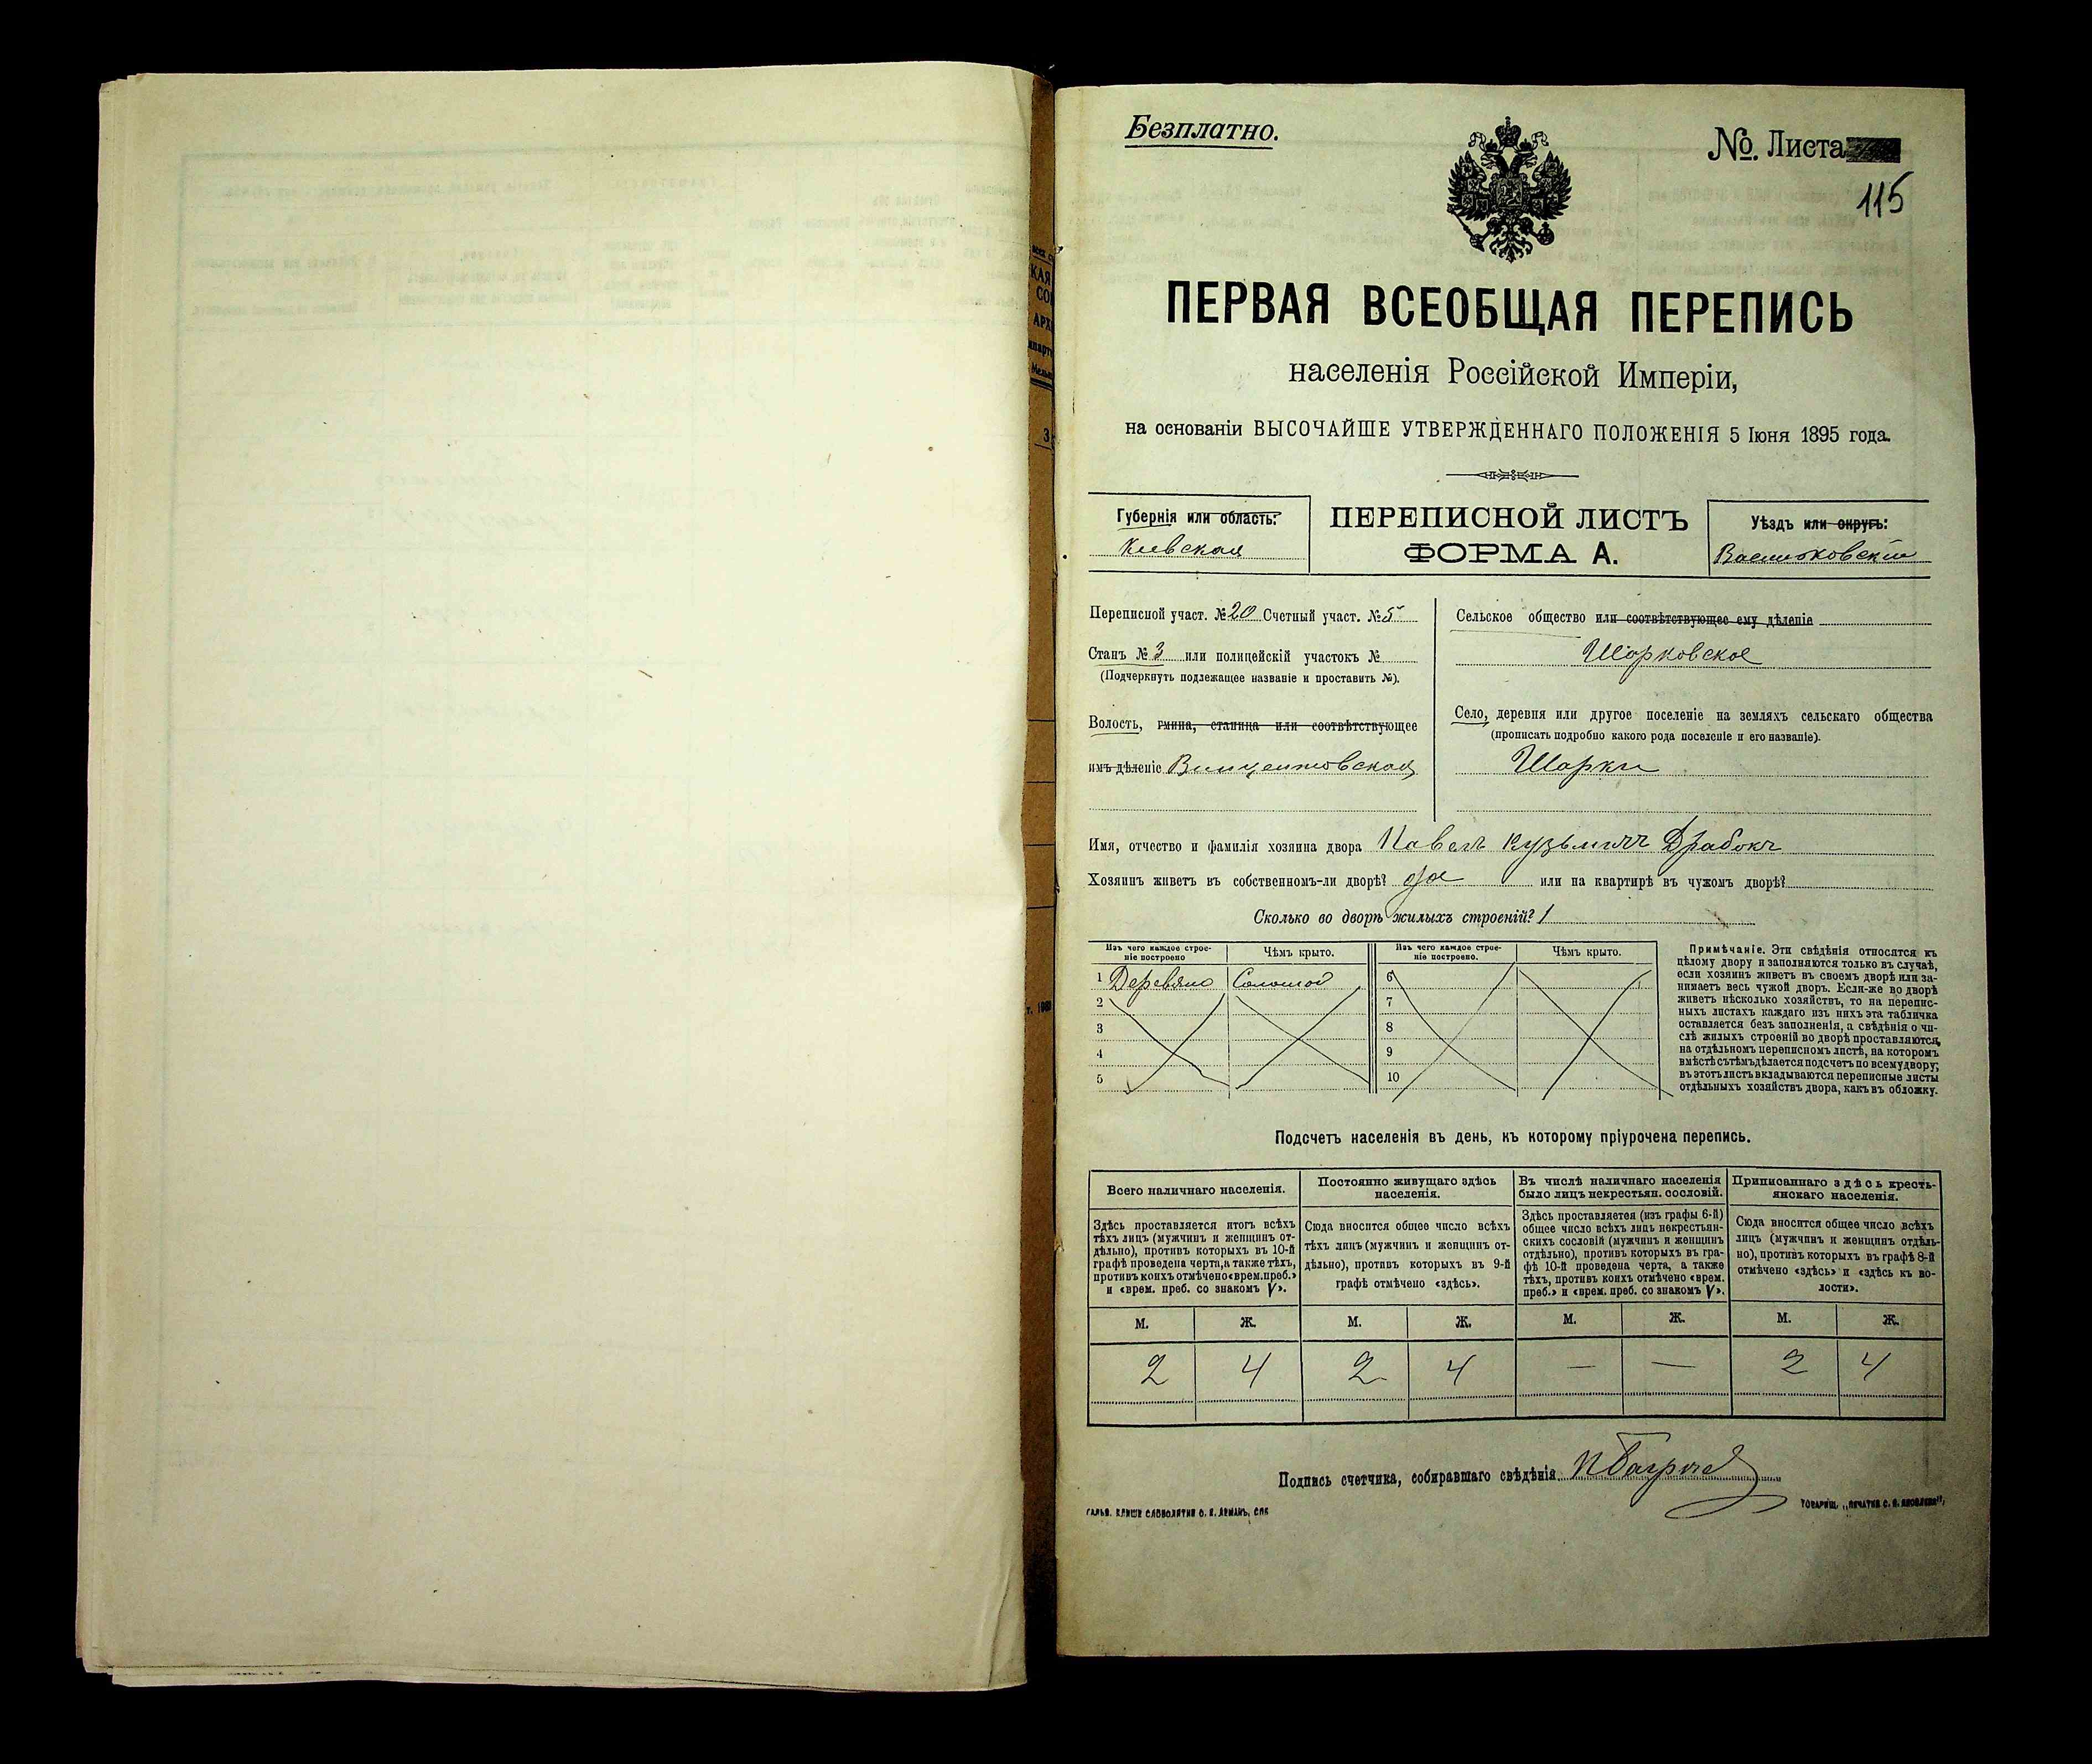 Безплатно.
№. Листа
115
ПЕРВАЯ ВСЕОБЩАЯ ПЕРЕПИСЬ
населенія Россійской Имперіи,
на основаніи ВЫСОЧАЙШЕ УТВЕРЖДЕННАГО ПОЛОЖЕНІЯ 5 Іюня 1895 года.
Губернія или область:
Кіевская
ПЕРЕПИСНОЙ ЛИСТЪ
ФОРМА А.
Уѣздъ или округъ:
Васильковскій
Переписной участ. № 20 Счетный участ. № 5
Станъ № 3 или полицейскій участокъ №
(Подчеркнуть подлежащее названіе и проставить №).
Волость, гмина, станица или соотвѣтствующее
имъ дѣленіе Винцентовская
Сельское общество или соотвѣтствующее ему дѣленіе
Шарковское
Село, деревня или другое поселеніе на земляхъ сельскаго общества
(прописать подробно какого рода поселеніе и его названіе).
Шарки
Имя, отчество и фамилія хозяина двора Павелъ Кузьмичъ Драбокъ
Хозяинъ живетъ въ собственномъ-ли дворѣ? да или на квартирѣ въ чужомъ дворѣ?
Сколько во дворѣ жилыхъ строеній? 1
Изъ чего каждое строе-
ніе построено
Чѣмъ крыто.
1 Деревяно Соломой
2
3
4
5
Изъ чего каждое строе-
ніе построено.
Чѣмъ крыто.
6
7
8
9
10
Примѣчаніе. Эти свѣдѣнія относятся къ
цѣлому двору и заполняются только въ случаѣ,
если хозяинъ живетъ въ своемъ дворѣ или за-
нимаетъ весь чужой дворъ. Если-же во дворѣ
живетъ нѣсколько хозяйствъ, то на перепис-
ныхъ листахъ каждаго изъ нихъ эта табличка
оставляется безъ заполненія, а свѣдѣнія о чи-
слѣ жилыхъ строеній во дворѣ проставляются,
на отдѣльномъ переписномъ листѣ, на которомъ
вмѣстѣ съ тѣмъ дѣлается подсчетъ по всему двору;
въ этотъ листъ вкладываются переписные листы
отдѣльныхъ хозяйствъ двора, какъ въ обложку.
Подсчетъ населенія въ день, къ которому пріурочена перепись.
Всего наличнаго населенія.
Здѣсь проставляется итогъ всѣхъ
тѣхъ лицъ (мужчинъ и женщинъ от-
дѣльно), противъ которыхъ въ 10-й
графѣ проведена черта, а также тѣхъ,
противъ коихъ отмѣчено «врем. преб.»
и «врем. преб. со знакомъ V».
Постоянно живущаго здѣсь
населенія.
Сюда вносится общее число всѣхъ
тѣхъ лицъ (мужчинъ и женщинъ от-
дѣльно), противъ которыхъ въ 9-й
графѣ отмѣчено «здѣсь».
Въ числѣ наличнаго населенія
было лицъ некрестьян. сословій.
Здѣсь проставляется (изъ графы 6-й)
общее число всѣхъ лицъ некрестьян-
скихъ сословій (мужчинъ и женщинъ
отдѣльно), противъ которыхъ въ гра-
фѣ 10-й проведена черта, а также
тѣхъ, противъ коихъ отмѣчено «врем.
преб.» и «врем. преб. со знакомъ V».
Приписаннаго здѣсь кресть-
янскаго населенія.
Сюда вносится общее число всѣхъ
лицъ (мужчинъ и женщинъ отдѣль-
но), противъ которыхъ въ графѣ 8-й
отмѣчено «здѣсь» и «здѣсь къ во-
лости».
М. Ж. М. Ж. М. Ж. М. Ж.
2 4 2 4 — — 2 4
Подпись счетчика, собиравшаго свѣдѣнія